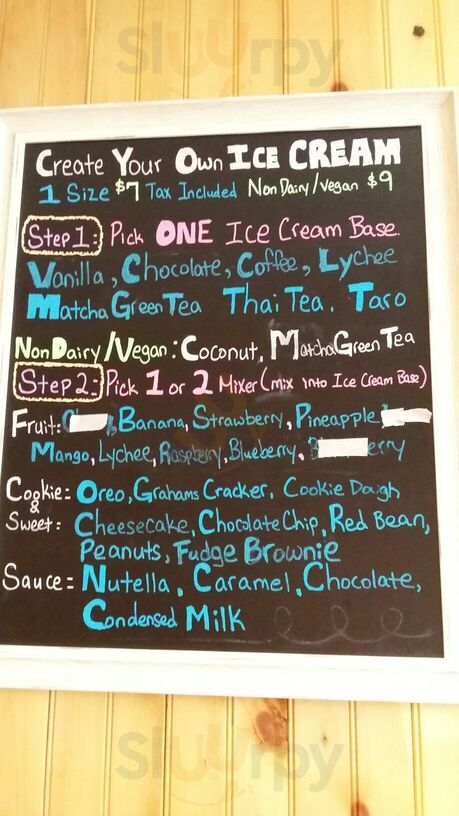 Sluurpy
Create Your Own ICE CREAM
1 Size $7 Tax Included Non Dairy/Vegan $9
Step 1: Pick ONE Ice Cream Base.
Vanilla, Chocolate, Coffee, Lychee
Matcha Green Tea Thai Tea, Taro
Non Dairy/Vegan: Coconut, Matcha Green Tea
Step 2: Pick 1 or 2 Mixer (mix into Ice Cream Base)
Fruit: Banana, Strawberry, Pineapple
Mango, Lychee, Raspberry, Blueberry,
Cookie: Oreo, Grahams Cracker, Cookie Dough
&
Sweet: Cheesecake, Chocolate Chip, Red Bean,
Peanuts, Fudge Brownie
Sauce: Nutella, Caramel, Chocolate,
Condensed Milk
Sluurpy